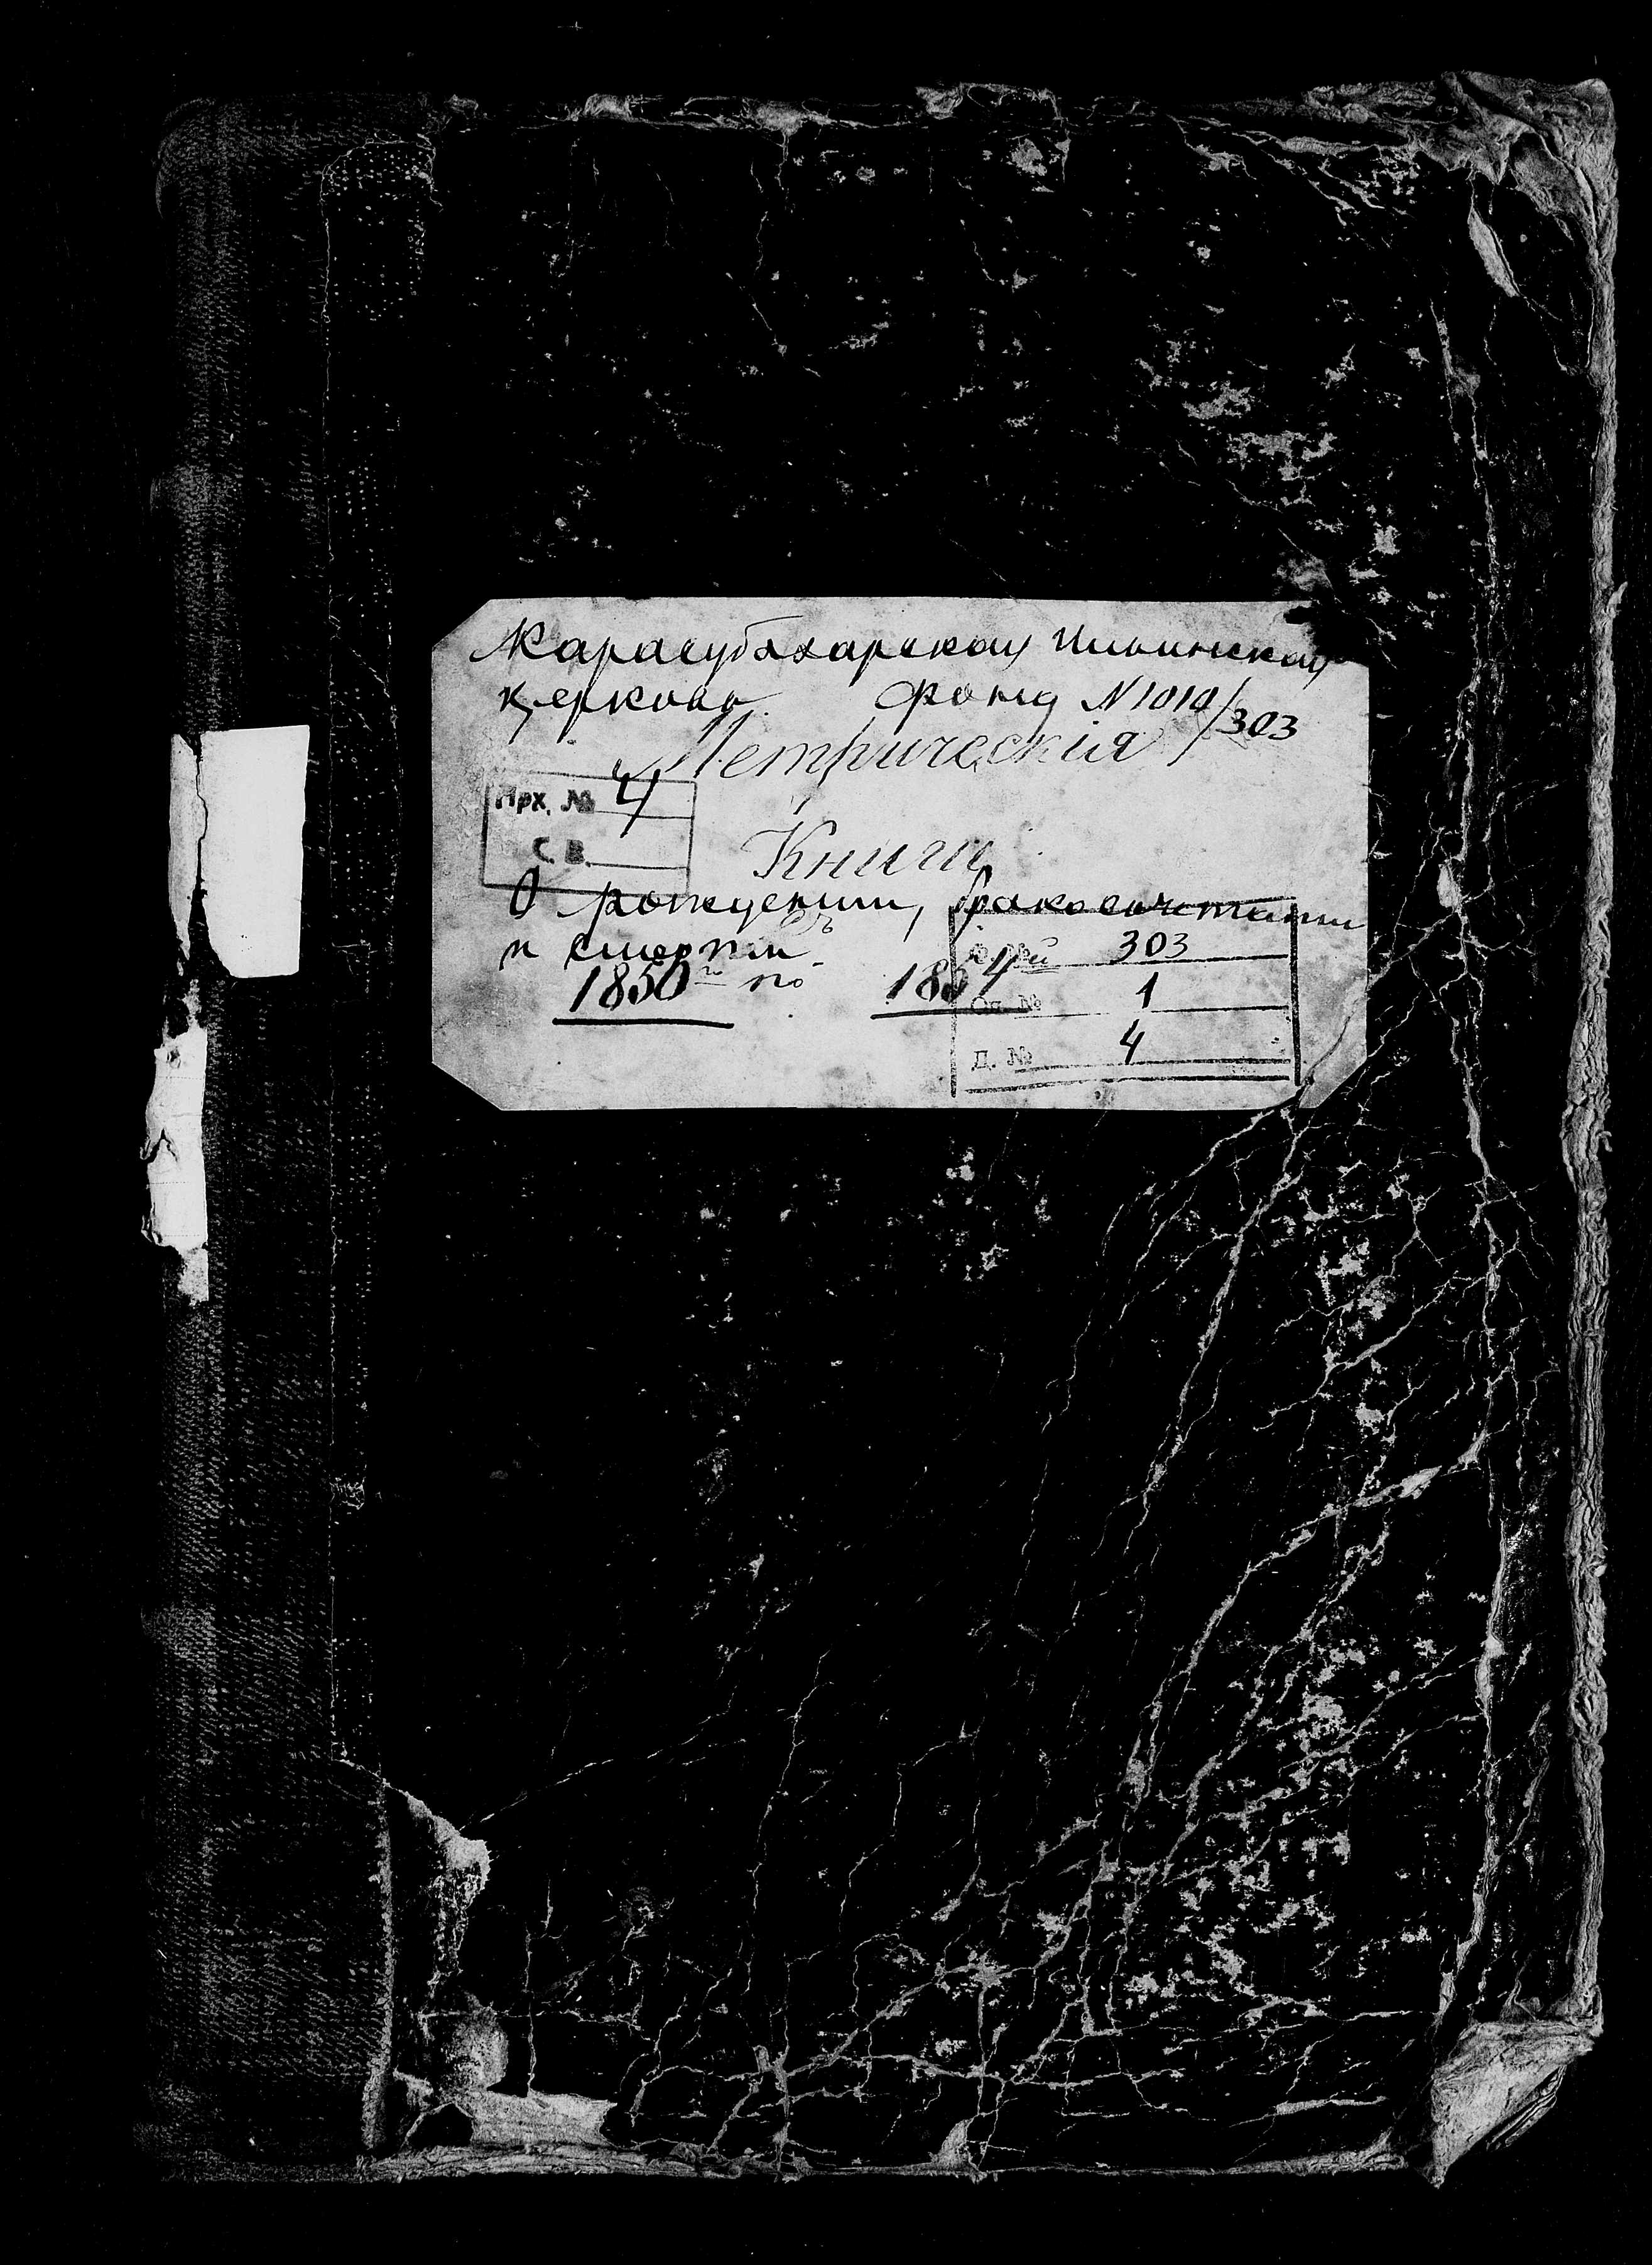 Карасубазарская Ильинская
церковь Фонд N 1010/303
Метрическія
Арх. № 4
С. В.
Книги
О рождении, бракосочетании
съ
и смерти
1850 го по 1854
303
Оп. № 1
Д. № 4